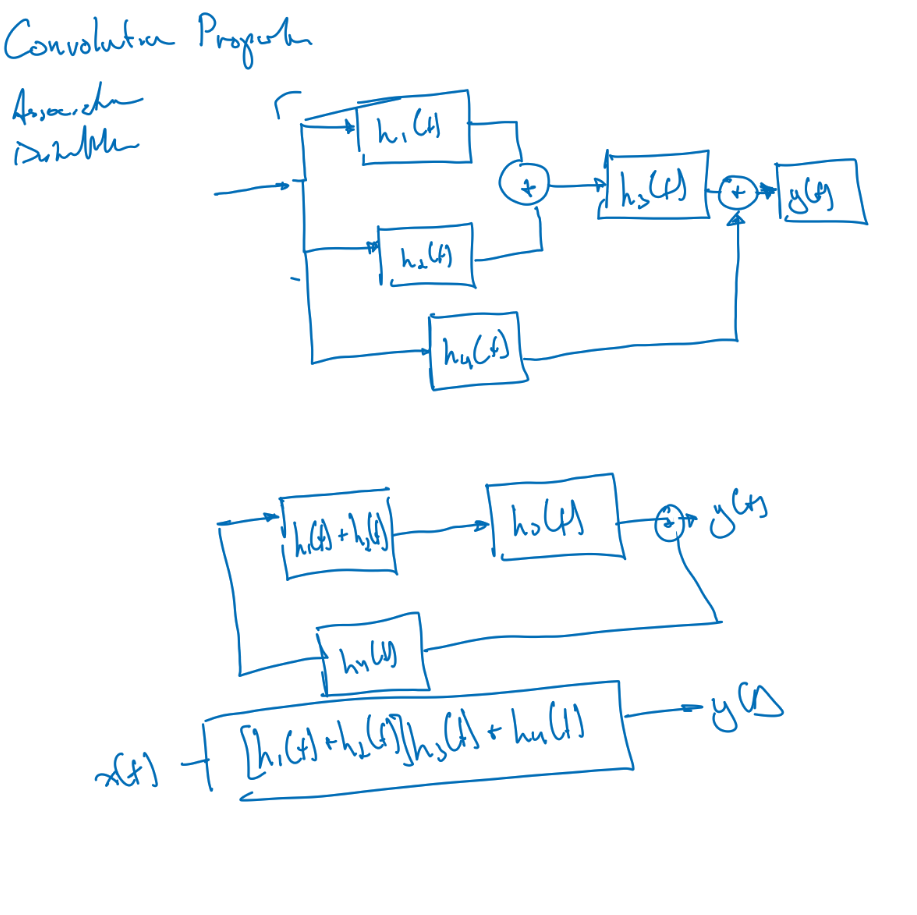 Convolution Properties
Associative
Distributive
h₁(t)
+
h₃(t)
+
y(t)
h₂(t)
h₄(t)
h₁(t) + h₂(t)
h₃(t)
+
y(t)
h₄(t)
x(t)
[h₁(t) + h₂(t)]h₃(t) + h₄(t)
y(t)